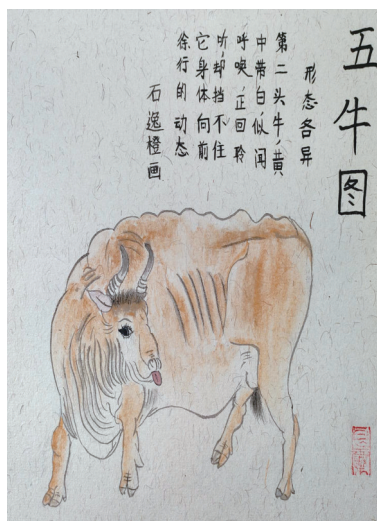 五牛图
形态各异
第二头牛，黄
中带白，似闻
呼唤，正回聆
听，却挡不住
它身体向前
徐行的动态
石逸橙画